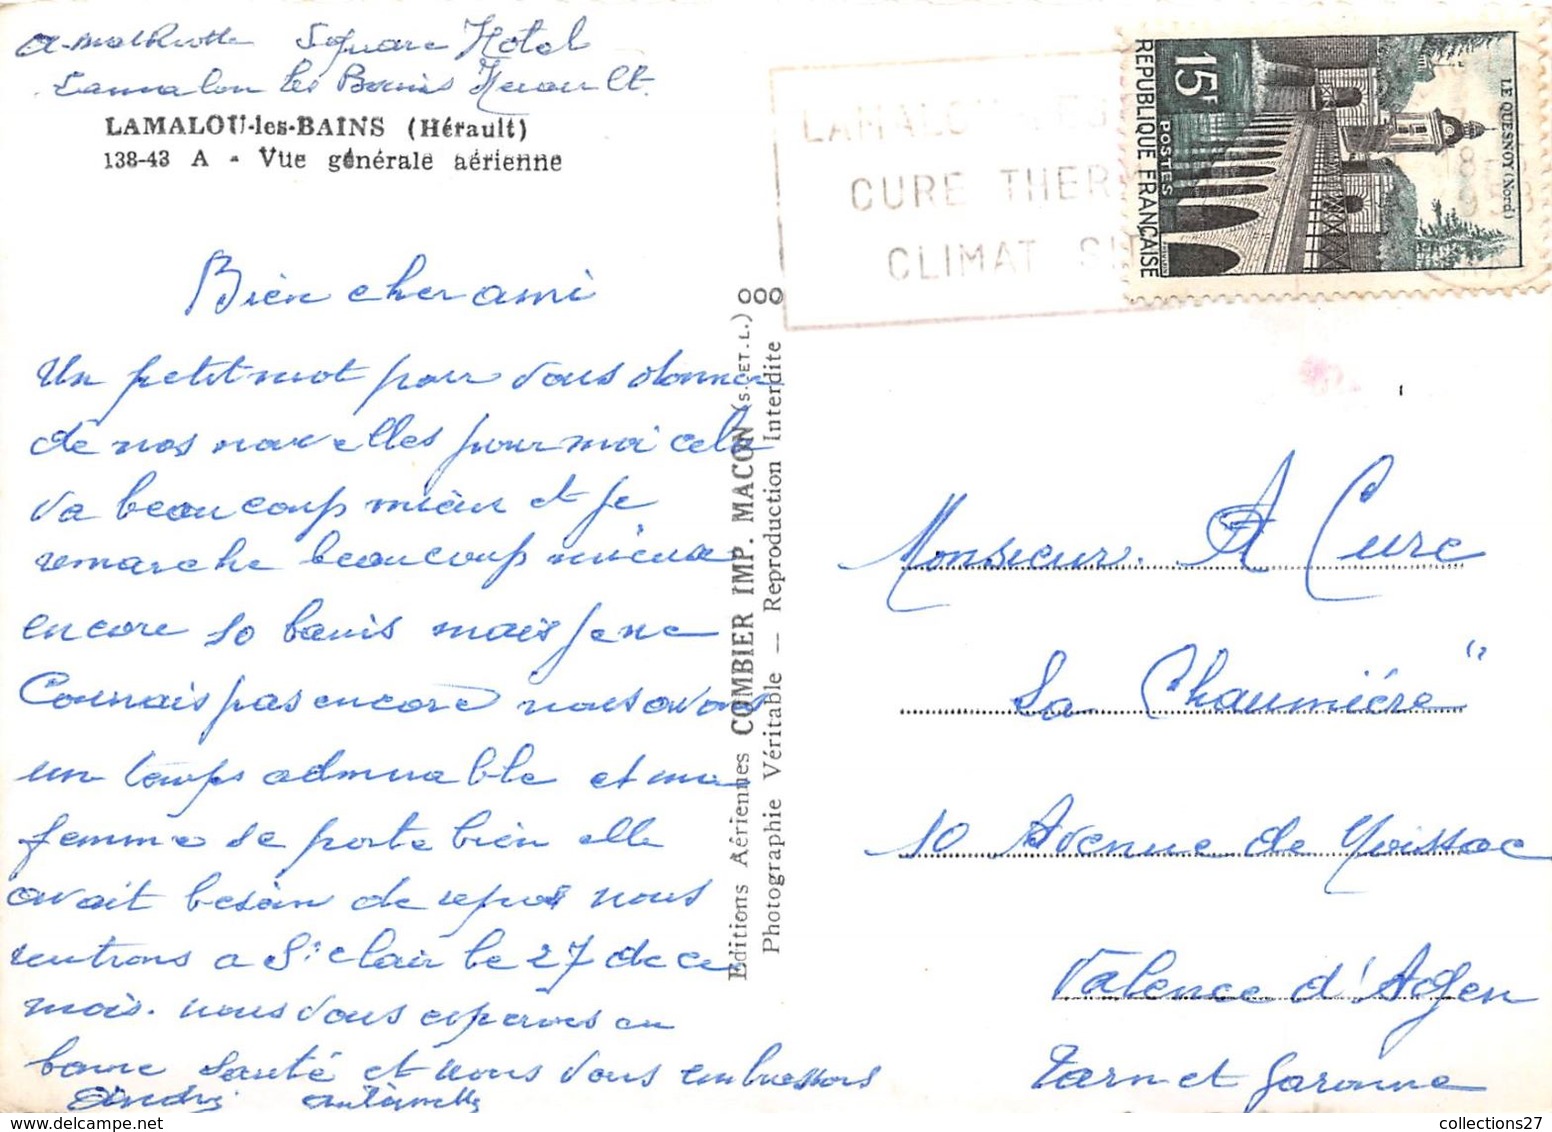 Square Hotel
Lamalou les Bains Herault
LAMALOU-les-BAINS (Hérault)
138-43 A - Vue générale aérienne
Bien cher ami
Un petit mot pour vous donner
de nos nouvelles pour moi cela
va beaucoup mieux et je
remarche beaucoup mieux
encore 10 bains mais je ne
Connais pas encore nous avons
un temps admirable et ma
femme se porte bien elle
avait besoin de repos nous
rentrons a St clair le 27 de ce
mois. nous vous esperons en
bonne santé et nous vous embrassons
André Antoinette
Editions Aériennes COMBIER IMP. MACON (S.-ET-L.) 000
Photographie Véritable — Reproduction Interdite
LAMALOU
CURE THER
CLIMAT
15F
POSTES
REPUBLIQUE FRANÇAISE
LE QUESNOY (Nord)
Monsieur A Cure
La Chaumiére"
10 Avenue de Moissac
Valence d'Agen
Tarn et Garonne
collections27